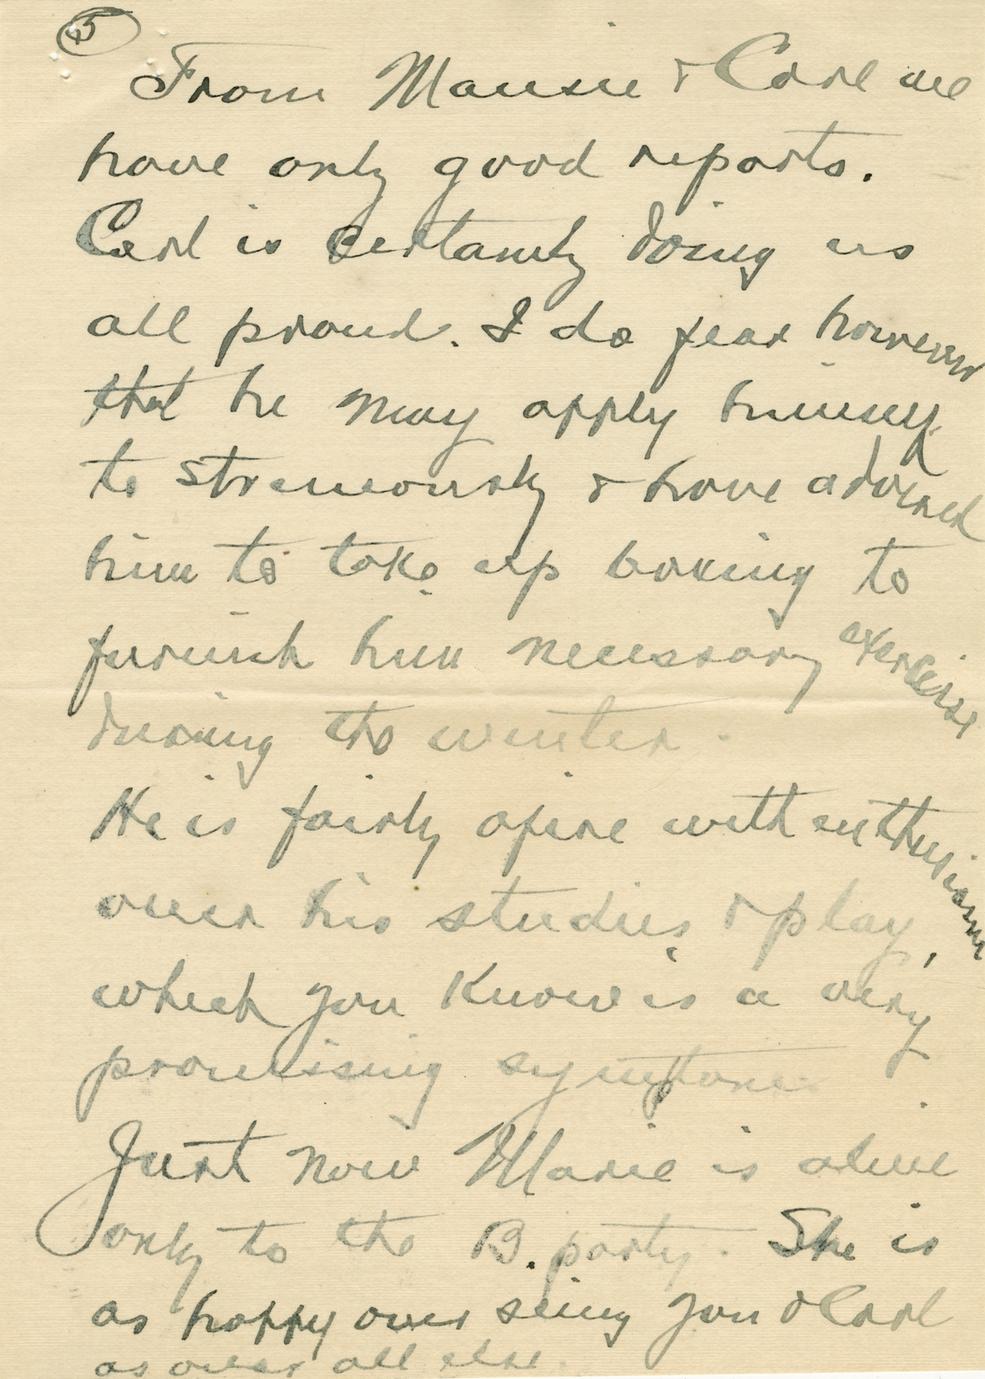 5
From Mausie & Carl we
have only good reports.
Carl is certainly doing us
all proud. I do fear however
that he may apply himself
to strenuously & have advised
him to take up boxing to
furnish him necessary exercise
during the winter.
He is fairly afire with enthusiasm
over his studies & play,
which you know is a very
promising symptom.
Just now Marie is alive
only to the B. party. She is
as happy over seing you & Carl
as over all else.